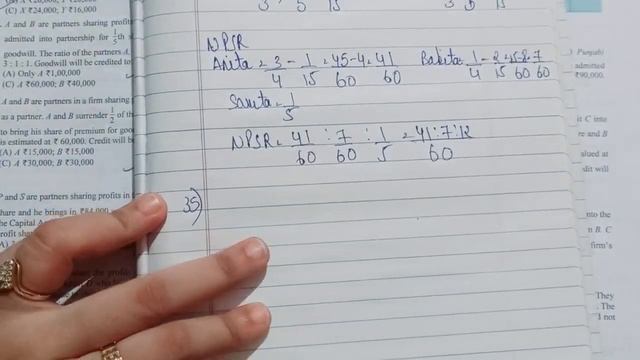 (C) A ₹24,000; Y ₹16,000
A and B are partners sharing profits
admitted into partnership for 1/5th
goodwill. The ratio of the partners A,
3 : 1 : 1. Goodwill will be credited to
(A) Only A ₹1,00,000
(C) A ₹60,000; B ₹40,000
A and B are partners in a firm sharing
as a partner. A and B surrender 1/2 of th
to bring his share of premium for goo
is estimated at ₹ 60,000. Credit will be
(A) A ₹15,000; B ₹15,000
(C) A ₹30,000; B ₹30,000
P and S are partners sharing profits in
hare and he brings in ₹84,000
he Capital A
rofit shar
3 5 15
3 5 15
NPSR
Anita = 3/4 - 1/15 = 45-4/60 = 41/60 Babita = 1/4 - 2/15 = 15-8/60 = 7/60
Samita = 1/5
NPSR = 41/60 : 7/60 : 1/5 = 41:7:12/60
35)
Punjabi
admitted
₹90,000.
it C into
re and B
alued at
dit will
nto the
n B. C
firm's
They
The
I not